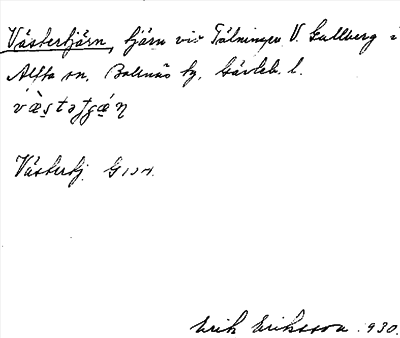 Västertjärn, tjärn vid Tälningen V. Gullberg i
Alfta sn, Bollnäs tg, Gävleb. l.
Västertj. G
Erik Eriksson 1930.